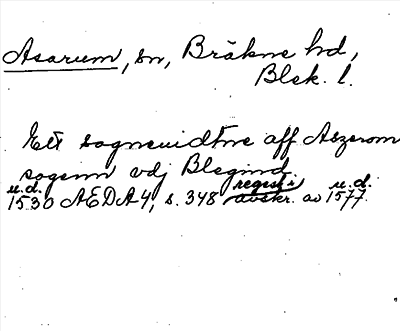 Asarum, sn, Bräkne hd,
Blek. l.
Ett sognevidtne aff Aszerom
sogenn vdj Blegind
u.d. regest i u.d.
1530 AEDA 4, s. 348 avskr. av 1577.